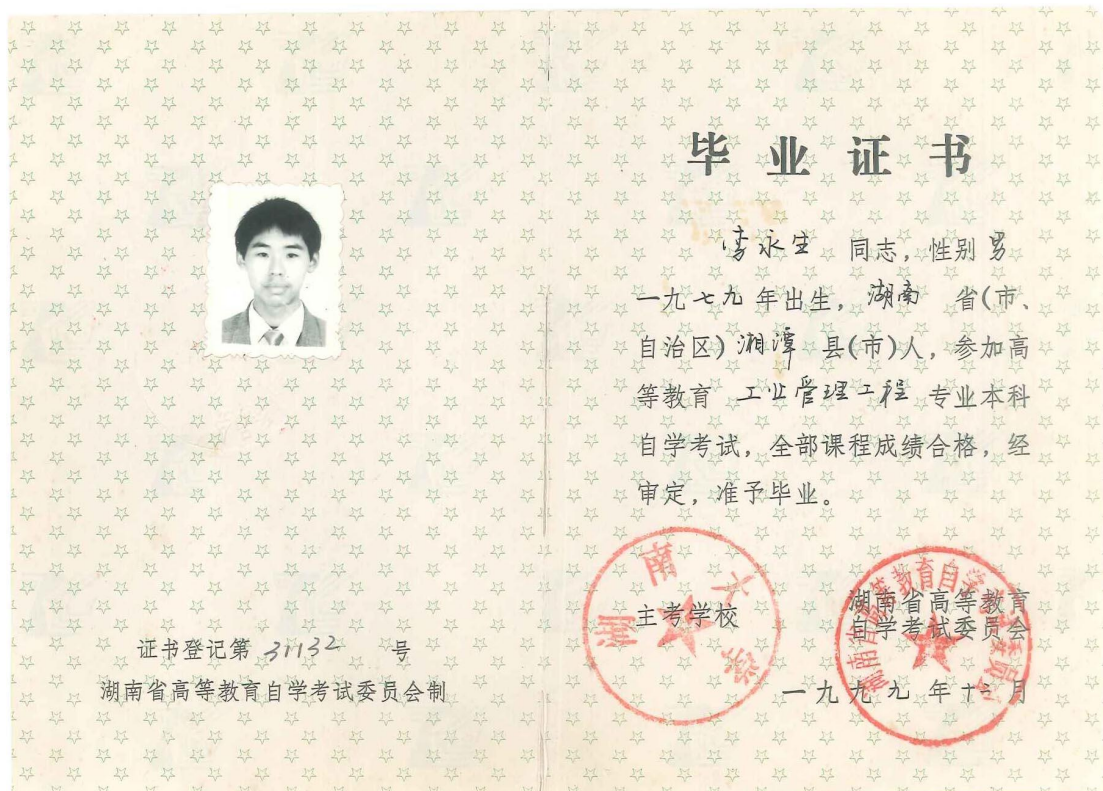 证书登记第 31132 号
湖南省高等教育自学考试委员会制
毕业证书
李永生 同志，性别男
一九七九年出生，湖南 省(市、
自治区)湘潭 县(市)人，参加高
等教育 工业管理工程 专业本科
自学考试，全部课程成绩合格，经
审定，准予毕业。
湖南大学
主考学校
湖南省高等教育自学考试委员会
湖南省高等教育
自学考试委员会
一九九九年十二月